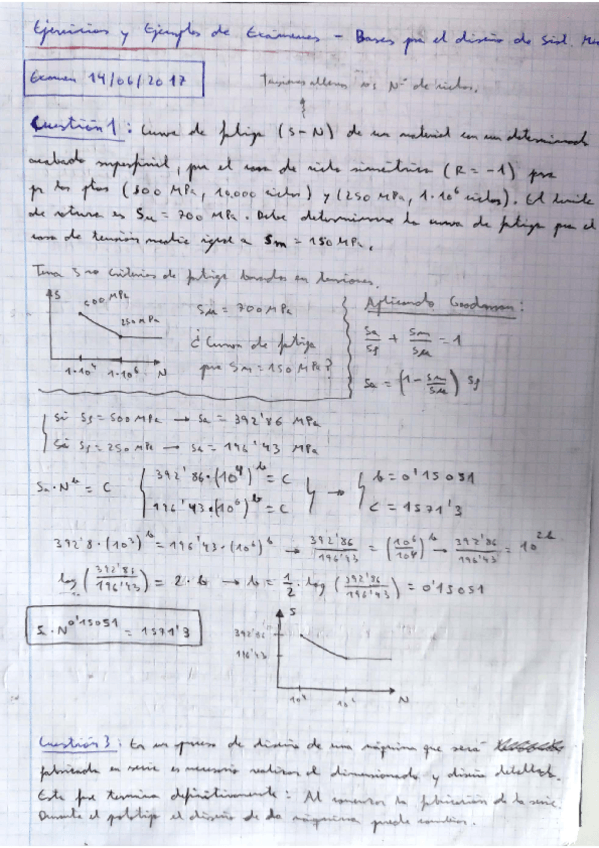 Ejercicios y Ejemplos de Exámenes - Bases para el diseño de Sist. Me
Examen 14/06/2017
Tensiones alternas vs Nº de ciclos.
Cuestión 1: Curva de fatiga (S-N) de un material con un determinado
acabado superficial, para el caso de ciclo simétrico (R = -1) pasa
por los ptos (500 MPa, 10,000 ciclos) y (250 MPa, 1·10⁶ ciclos). El límite
de rotura es Su = 700 MPa. Debe determinarse la curva de fatiga para el
caso de tensión media igual a Sm = 150 MPa.
Tema 3 → Criterios de fatiga basados en tensiones.
S
500 MPa
250 MPa
1·10⁴ 1·10⁶ N
Su = 700 MPa
¿Curva de fatiga
para Sm = 150 MPa?
Aplicando Goodman:
Sa/Sf + Sm/Su = 1
Sa = (1 - Sm/Su) Sf
Si Sf = 500 MPa → Sa = 392'86 MPa
Si Sf = 250 MPa → Sa = 196'43 MPa
Sa · N^b = C
392'86·(10⁴)^b = C
196'43·(10⁶)^b = C
→ b = 0'15051
C = 1571'3
392'8·(10²)^b = 196'43·(10⁶)^b → 392'86/196'43 = (10⁶/10⁴)^b → 392'86/196'43 = 10^2b
log (392'86/196'43) = 2·b → b = 1/2 · log (392'86/196'43) = 0'15051
S·N^0'15051 = 1571'3
S
392'86
196'43
10⁴ 10⁶ N
Cuestión 3: En un proceso de diseño de una máquina que será
fabricada en serie es necesario realizar el dimensionado y diseño detallado.
Esta fase termina definitivamente: Al comenzar la fabricación de la serie.
Durante el prototipo el diseño de la máquina puede cambiar.